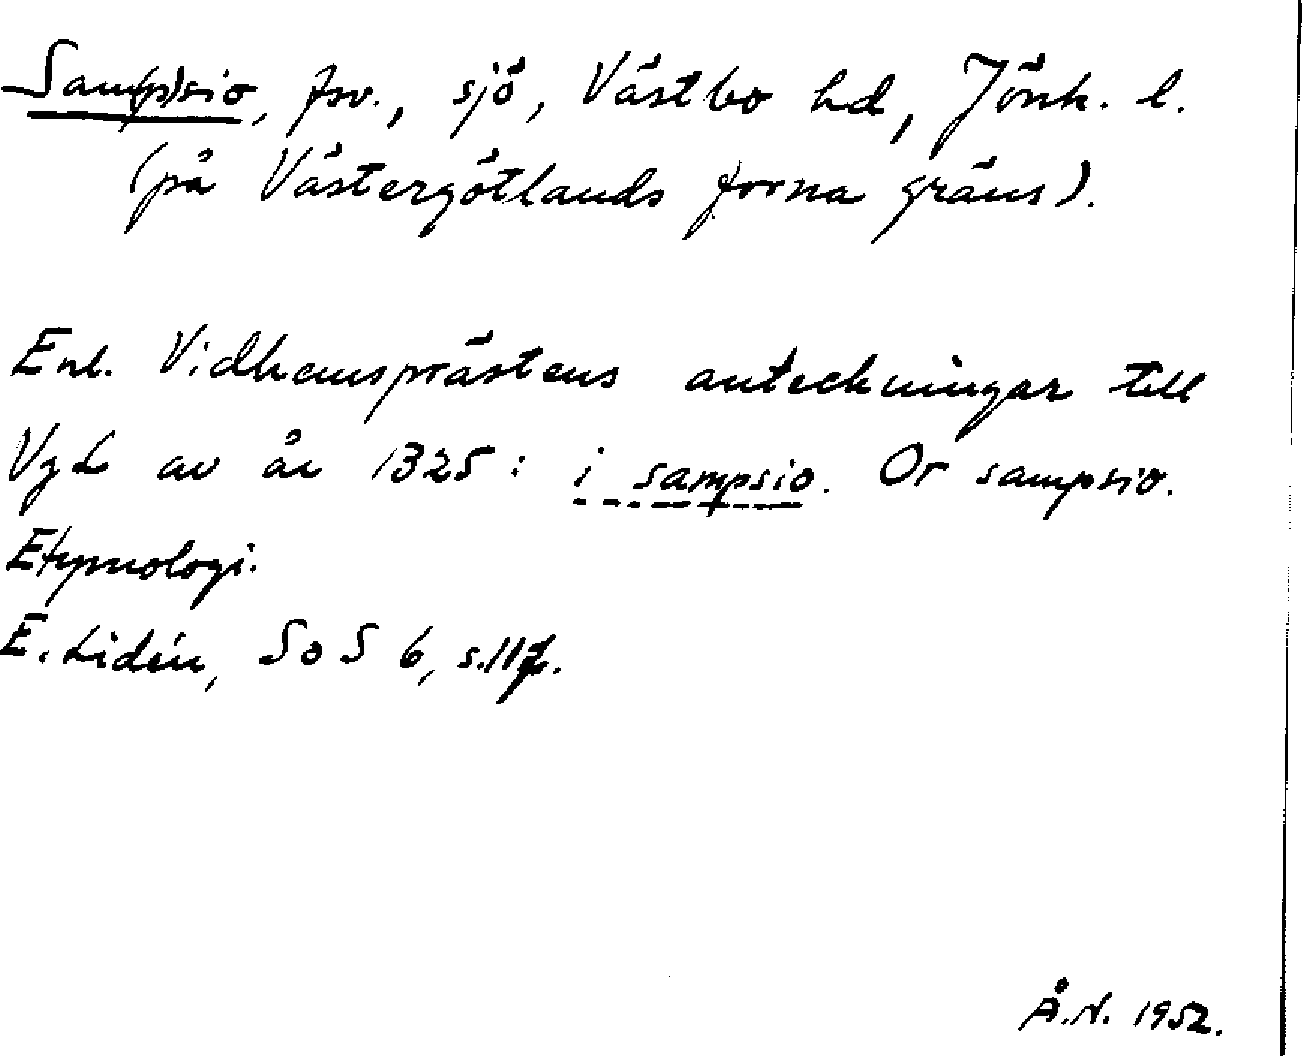 Sam(p)sio, fsv., sjö, Västbo hd, Jönk. l.
(på Västergötlands forna gräns).
Enl. Vidhemsprästens anteckningar till
VgL av år 1325: i sampsio. Or sampsio.
Etymologi.
E. Lidén, SoS 6, s. 11 f.
Å.N. 1952.